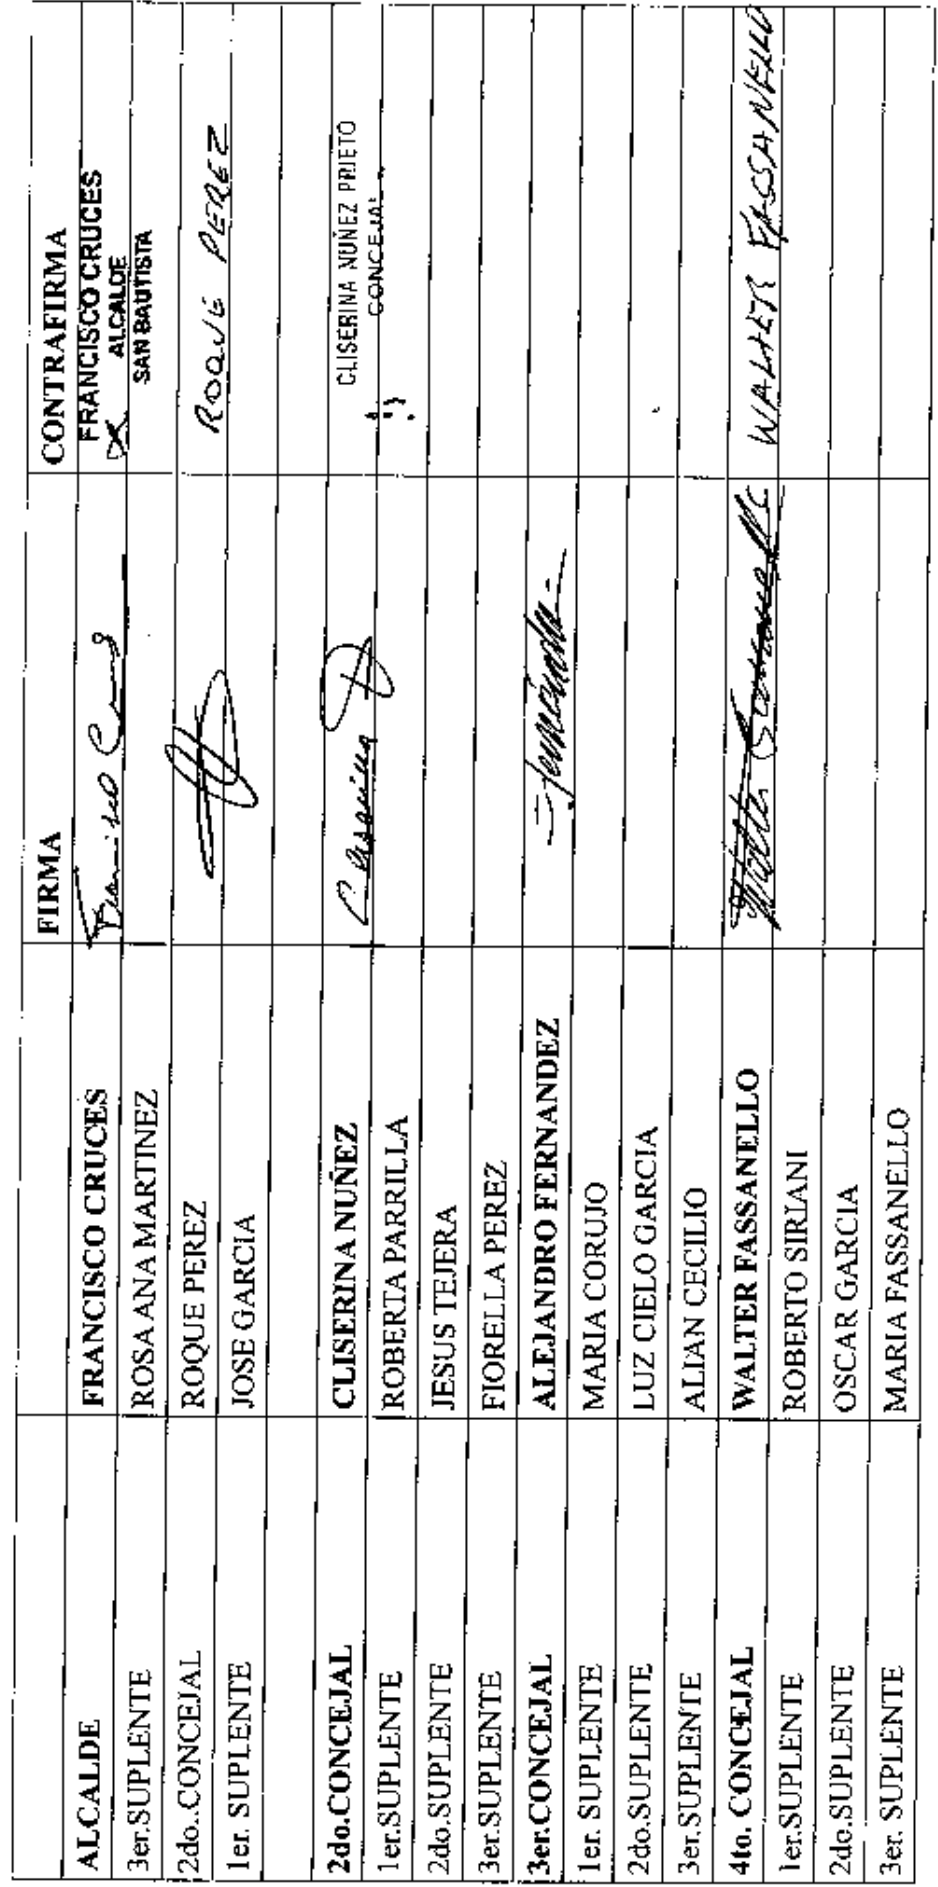 FIRMA CONTRAFIRMA
ALCALDE FRANCISCO CRUCES FRANCISCO CRUCES
ALCALDE
SAN BAUTISTA
3er.SUPLENTE ROSA ANA MARTINEZ
2do.CONCEJAL ROQUE PEREZ ROQUE PEREZ
1er. SUPLENTE JOSE GARCIA
2do.CONCEJAL CLISERINA NUÑEZ CLISERINA NUÑEZ PRIETO
CONCEJAL
1er.SUPLENTE ROBERTA PARRILLA
2do.SUPLENTE JESUS TEJERA
3er.SUPLENTE FIORELLA PEREZ
3er.CONCEJAL ALEJANDRO FERNANDEZ
1er. SUPLENTE MARIA CORUJO
2do.SUPLENTE LUZ CIELO GARCIA
3er.SUPLENTE ALIAN CECILIO
4to. CONCEJAL WALTER FASSANELLO WALTER FASSANELLO
1er.SUPLENTE ROBERTO SIRIANI
2do.SUPLENTE OSCAR GARCIA
3er. SUPLENTE MARIA FASSANELLO